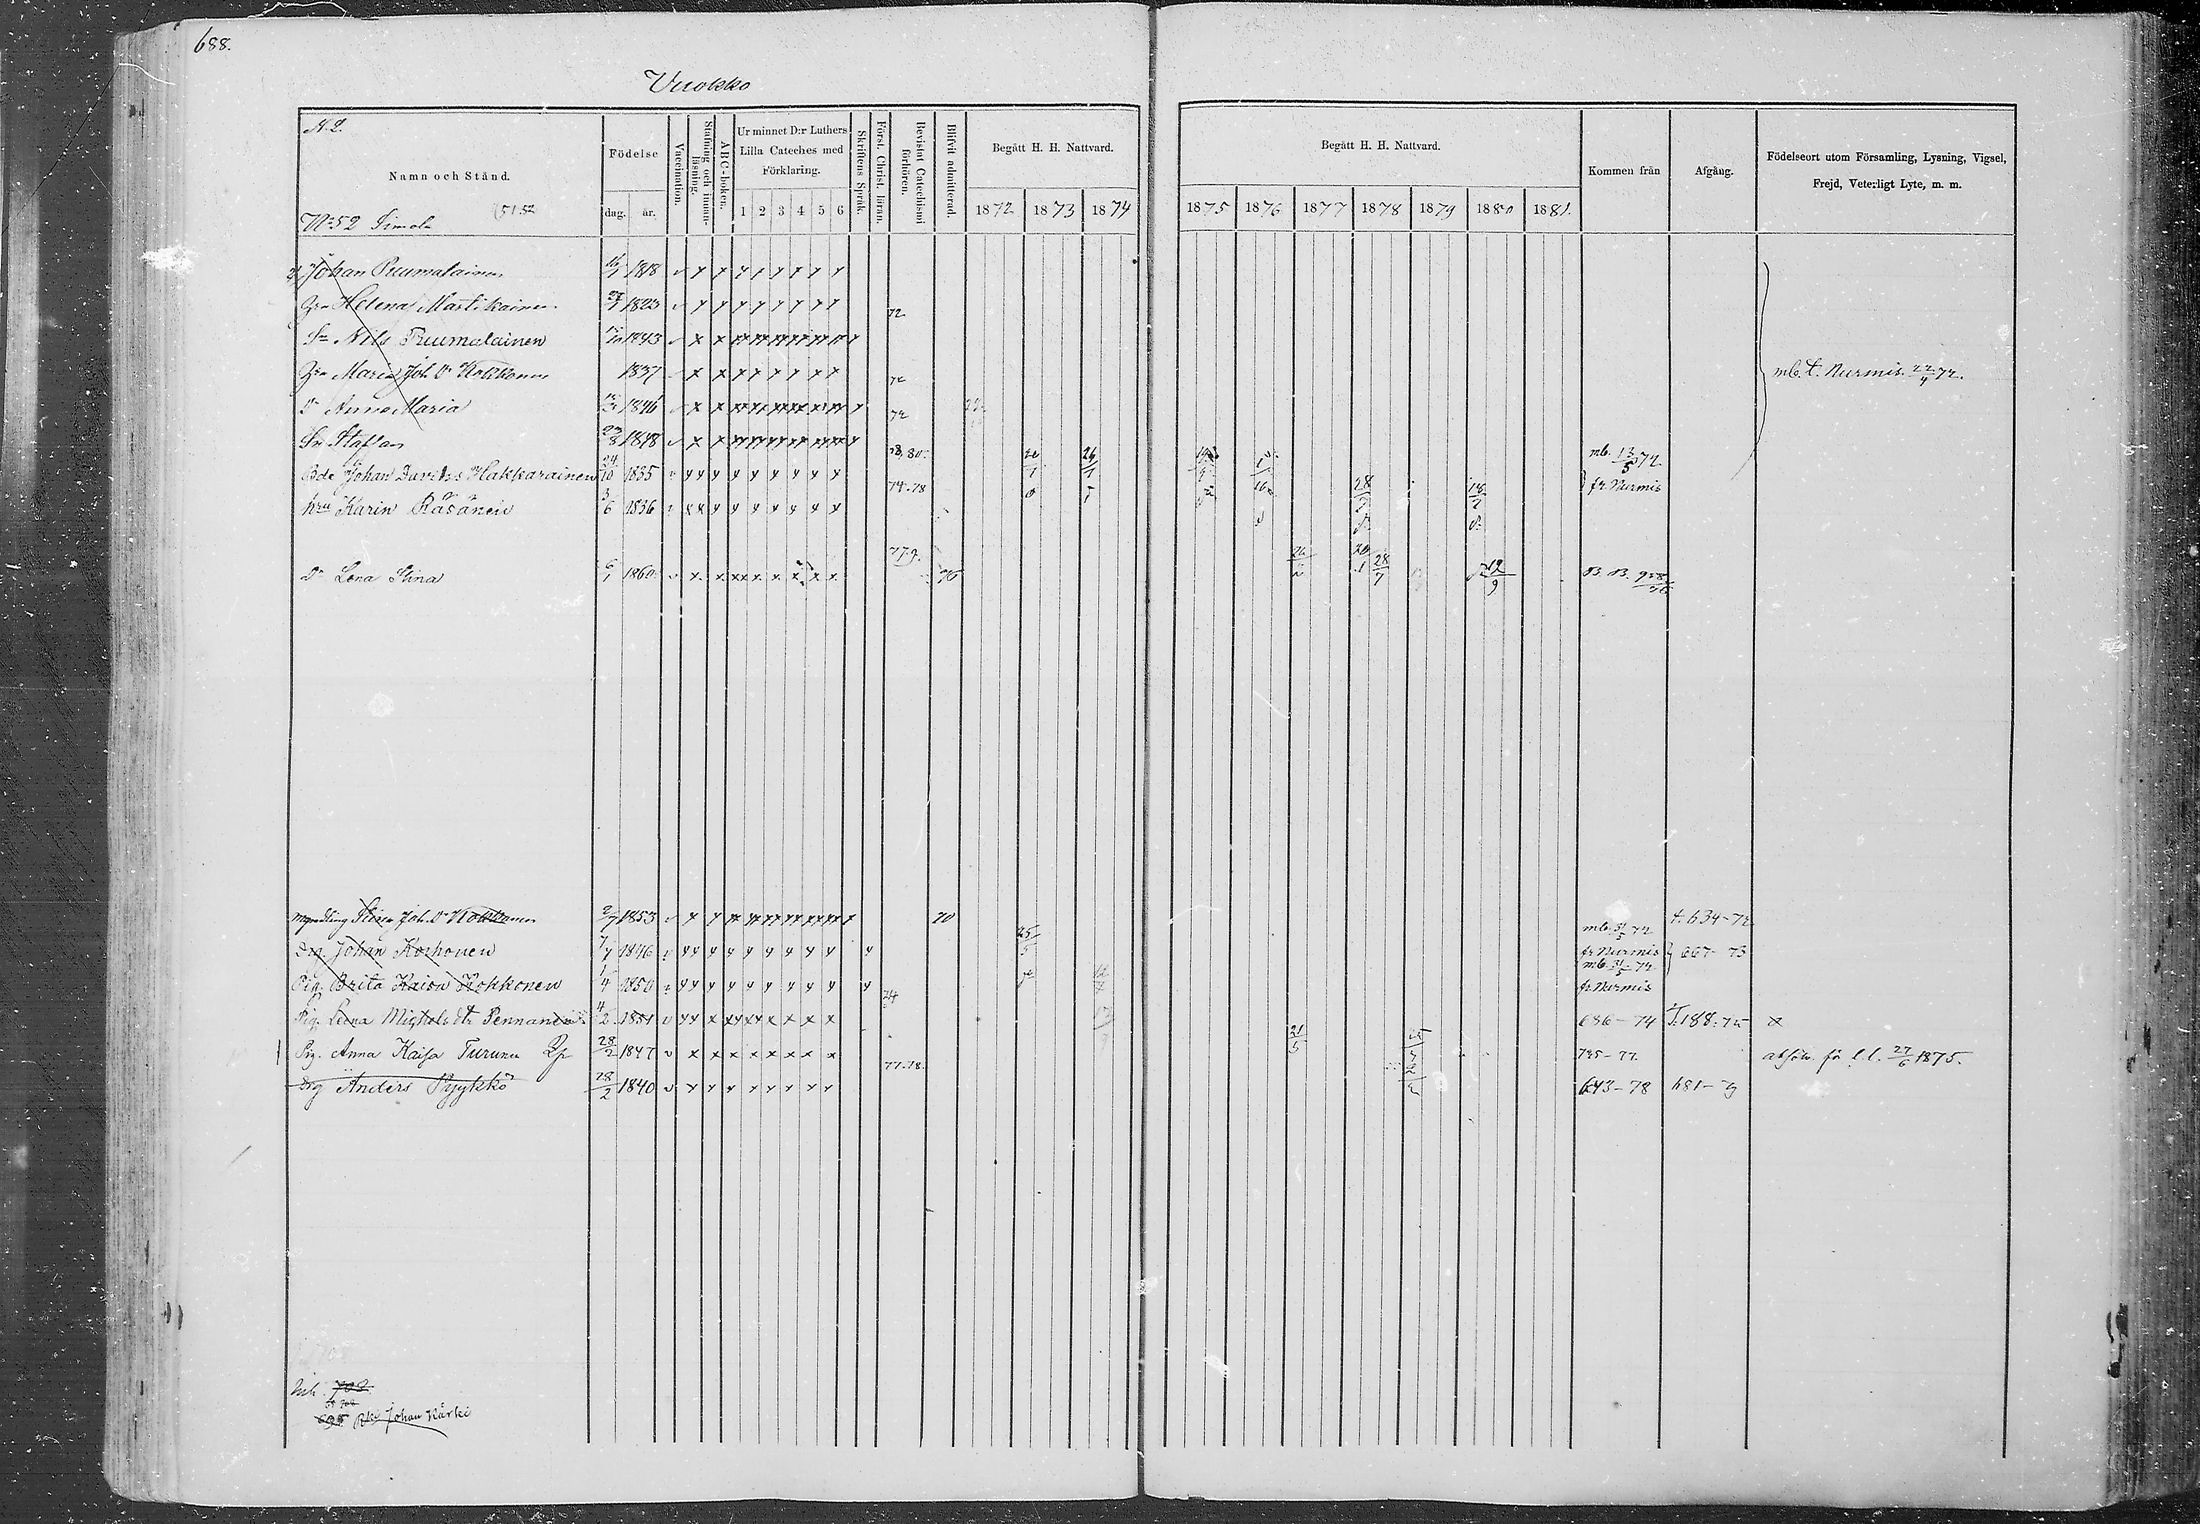 688.
Vuokko
N. 2.
Namn och Stånd.
Födelse
dag. år.
Vaccination.
Stafning och innan-läsning.
ABC-boken.
Ur minnet D:r Luthers Lilla Cateches med Förklaring.
1 2 3 4 5 6
Skriftens Språk.
Först. Christ. läran.
Bevistat Catechismi förhören.
Blifvit admitterad.
Begått H. H. Nattvard.
1872 1873 1874
Begått H. H. Nattvard.
1875 1876 1877 1878 1879 1880 1881.
Kommen från
Afgång.
Födelseort utom Församling, Lysning, Vigsel, Frejd, Veterligt Lyte, m. m.
No 52 Simola 51.52
Johan Puumalainen 1818
Helena Martikainen 1823 72
Sn Nils Puumalainen 1843
Maria Joh. Dr Kokkonen 1837 72 mb. t. Nurmis 22/4 72.
Dr Anna Maria 1846 72
Sn Staffan 23/8 1848
Bde Johan Davidss Hakkarainen 24/10 1835 mb. 13/5 72
hru Karin Räsänen 3/6 1836 74.78 28/7 18/2 fr Nurmis
Dr Lena Stina 6/1 1860 77.9. 76 28/7 12/9 B. B. 958/76
Myndling Stina Joh. Dr Kokkonen 2/7 1853 70 t. 634-72
mb. 31/5 72
Drg. Johan Korhonen 7/7 1846 25/5 fr Nurmis 667-73
mb. 31/5 72
Pig. Brita Kaisa Kokkonen 1/4 1850 fr Nurmis
Pig. Leena Michelsdtr Pennanen 4/2 1851 74 686-74 T. 188.75
Pig. Anna Kaisa Turunen 28/2 1847 77.78. 21/5 725-77. absolv. för l. l. 27/6 1875.
Drg Anders Pyykkö 28/2 1840 643-78 681-9
Inh. 702
695 Johan Kärki